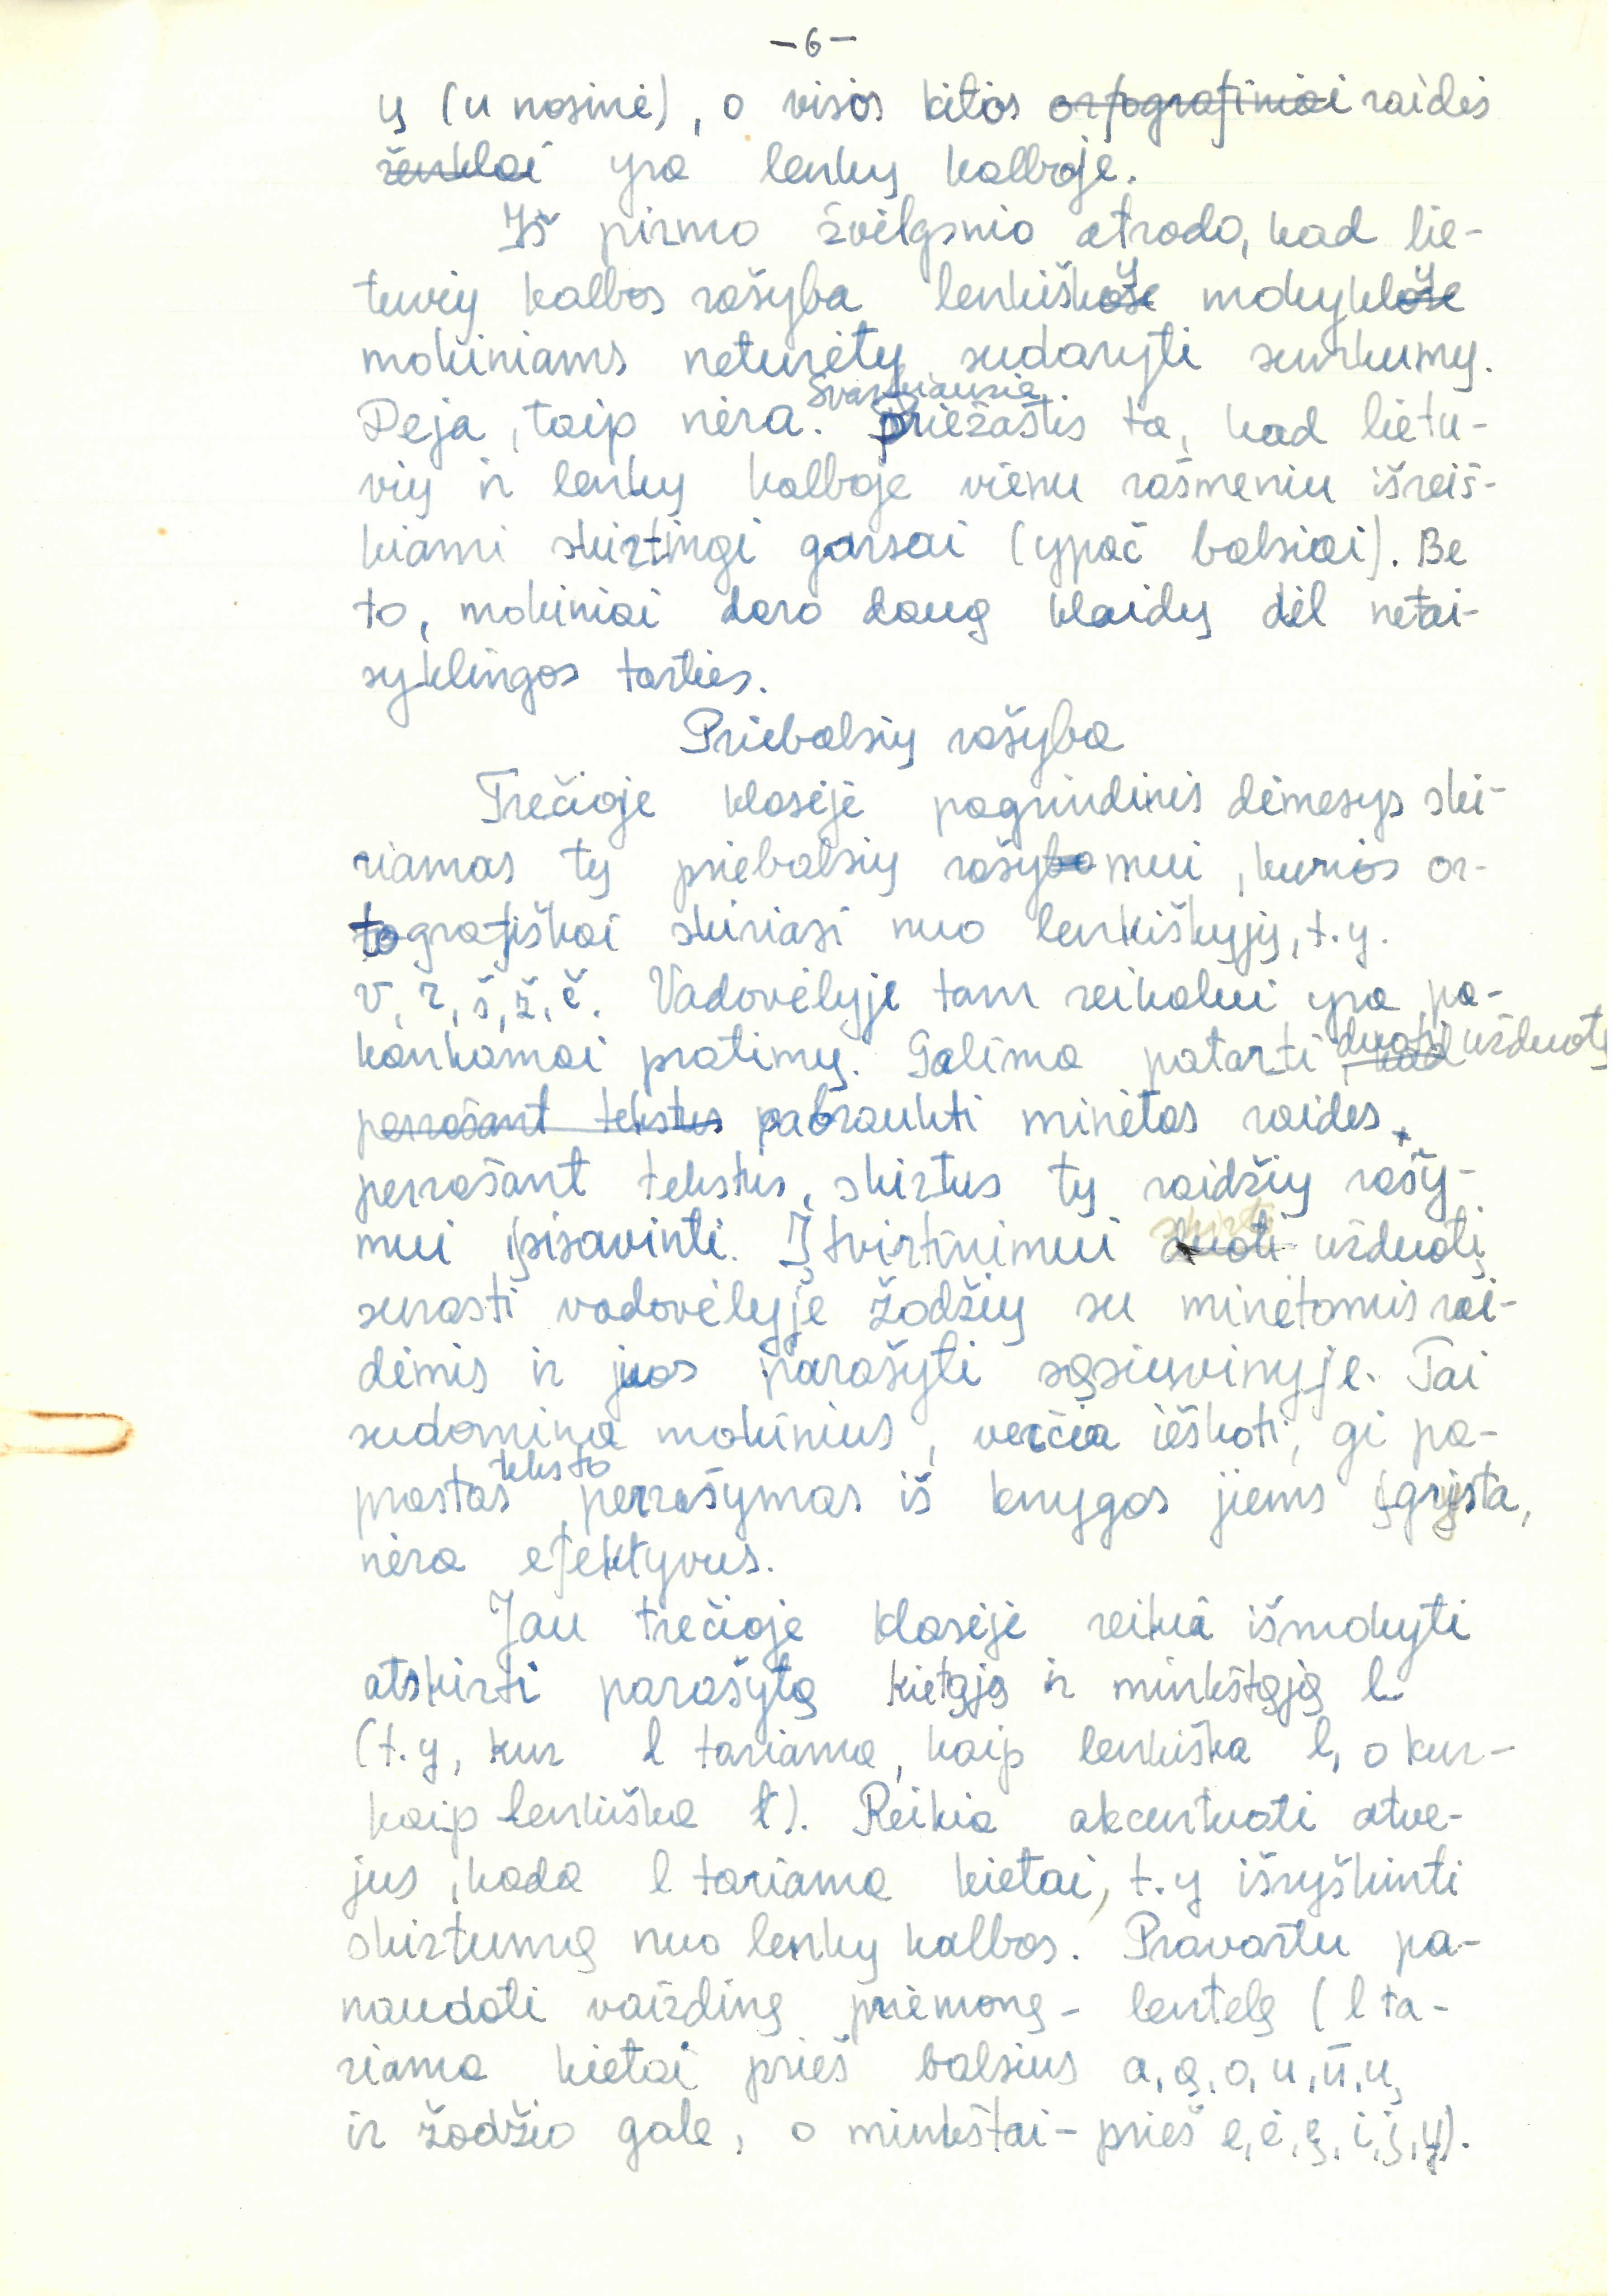 -6-
ų (u nosinė), o visos kitos ortografiniai raidės
ženklai yra lenkų kalboje.
Iš pirmo žvilgsnio atrodo, kad lie-
tuvių kalbos rašyba lenkiškų mokyklų
mokiniams neturėtų sudaryti sunkumų.
Svarbiausia
Deja, taip nėra. priežastis ta, kad lietu-
vių ir lenkų kalboje vienu rašmeniu išreiš-
kiami skirtingi garsai (ypač balsiai). Be
to, mokiniai daro daug klaidų dėl netai-
syklingos tarties.
Priebalsių rašyba
Trečioje klasėje pagrindinis dėmesys ski-
riamas tų priebalsių rašymui, kurios or-
tografiškai skiriasi nuo lenkiškųjų, t.y.
v, r, š, ž, č. Vadovėlyje tam reikalui yra pa-
kankamai pratimų. Galima patarti duoti kad užduotį
perrašant tekstus pabraukti minėtas raides,
perrašant tekstus, skirtus tų raidžių rašy-
mui įsisavinti. Įtvirtinimui skirti duoti užduotį
surasti vadovėlyje žodžių su minėtomis rai-
dėmis ir juos parašyti sąsiuvinyje. Tai
sudomina mokinius, verčia ieškoti, gi pa-
teksto
prastas perrašymas iš knygos jiems įgrįsta,
nėra efektyvus.
Jau trečioje klasėje reikia išmokyti
atskirti parašytą kietąją ir minkštąją l
(t.y, kur l tariama, kaip lenkiška l, o kur-
kaip lenkiška ł). Reikia akcentuoti atve-
jus, kada l tariama kietai, t.y išryškinti
skirtumą nuo lenkų kalbos. Pravartu pa-
naudoti vaizdinę priemonę - lentelę (l ta-
riama kietai prieš balsius a, ą, o, u, ū, ų
ir žodžio gale, o minkštai - prieš e, ė, ę, i, į, y).